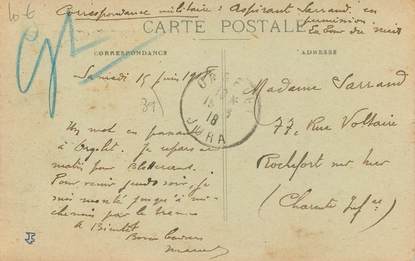 Correspondance militaire : Aspirant Sarrand, en
permission
CARTE POSTALE
CORRESPONDANCE
ADRESSE
Samedi 15 Juin 1918
Un mot en passant
à Orgelet. Je repars
matin pour
Pour venir jeudi soir, je
suis monté jusqu'à mi-
chemin par le
A Bientôt
Bons baisers
Madame Sarrand
77, Rue Voltaire
Rochefort sur mer
(Charente Infre)
18
JURA